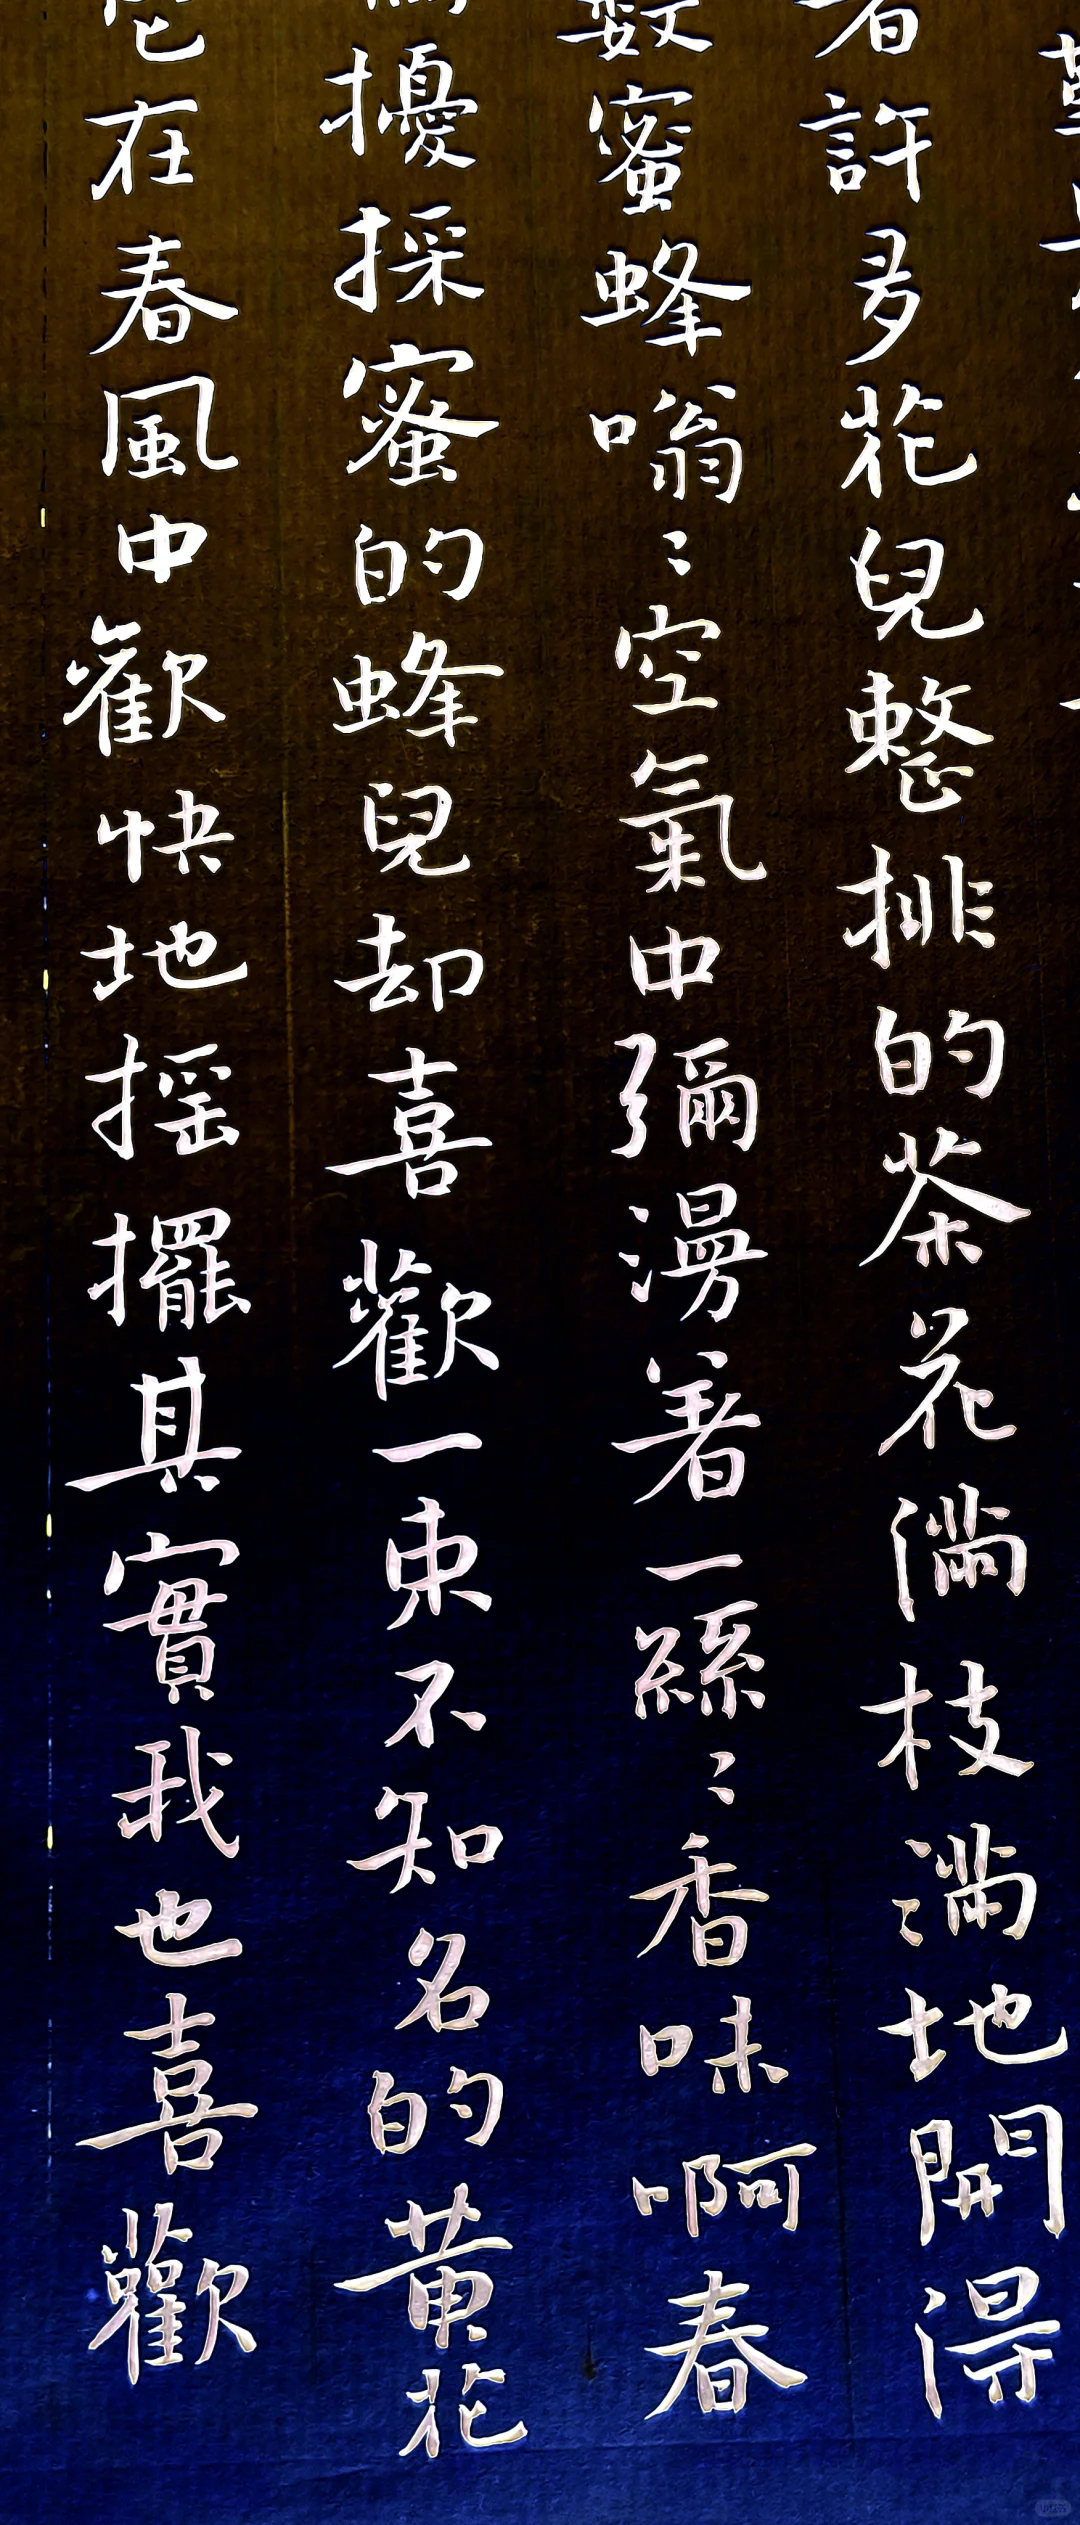 着許多花兒整排的茶花滿枝滿地開得
數蜜蜂嗡〻空氣中彌漫着一絲〻香味啊春
擾採蜜的蜂兒却喜歡一束不知名的黄花
它在春風中歡快地摇擺其實我也喜歡